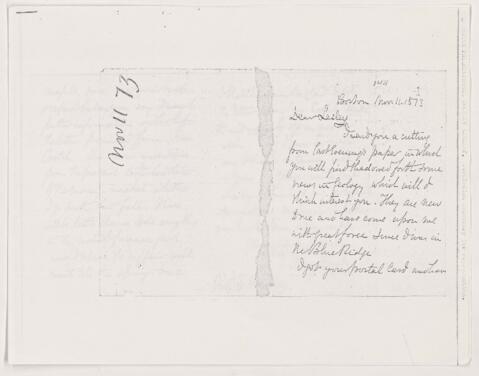 Nov 11 73
Boston Nov. 11. 1873
Dear Lesley
I send you a cutting
from last evening's paper in which
you will find shadowed forth some
news in Geology which will I
think interest you. They are new
to me and have come upon me
with great force since I was in
the Blue Ridge
I got your Postal Card and have